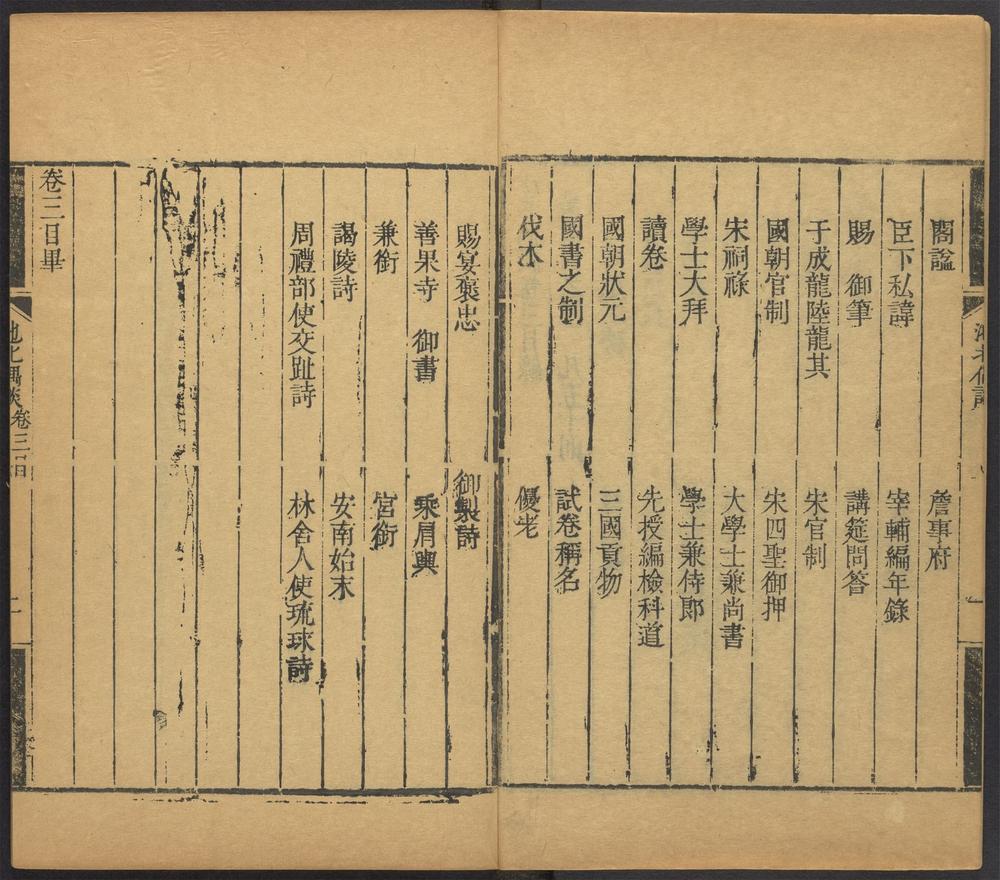 閣諡 詹事府
臣下私諱 宰輔編年錄
賜 御筆 講筵問答
于成龍陸龍其 宋官制
國朝官制 宋四聖御押
宋祠祿 大學士兼尚書
學士大拜 學士兼侍郎
讀卷 先授編檢科道
國朝狀元 三國貢物
國書之制 試卷稱名
伐木 優老
賜宴褒忠 御製詩
善果寺 御書 乘肩輿
兼銜 宮銜
謁陵詩 安南始末
周禮部使交趾詩 林舍人使琉球詩
卷三目畢
池北偶談 卷三目 二